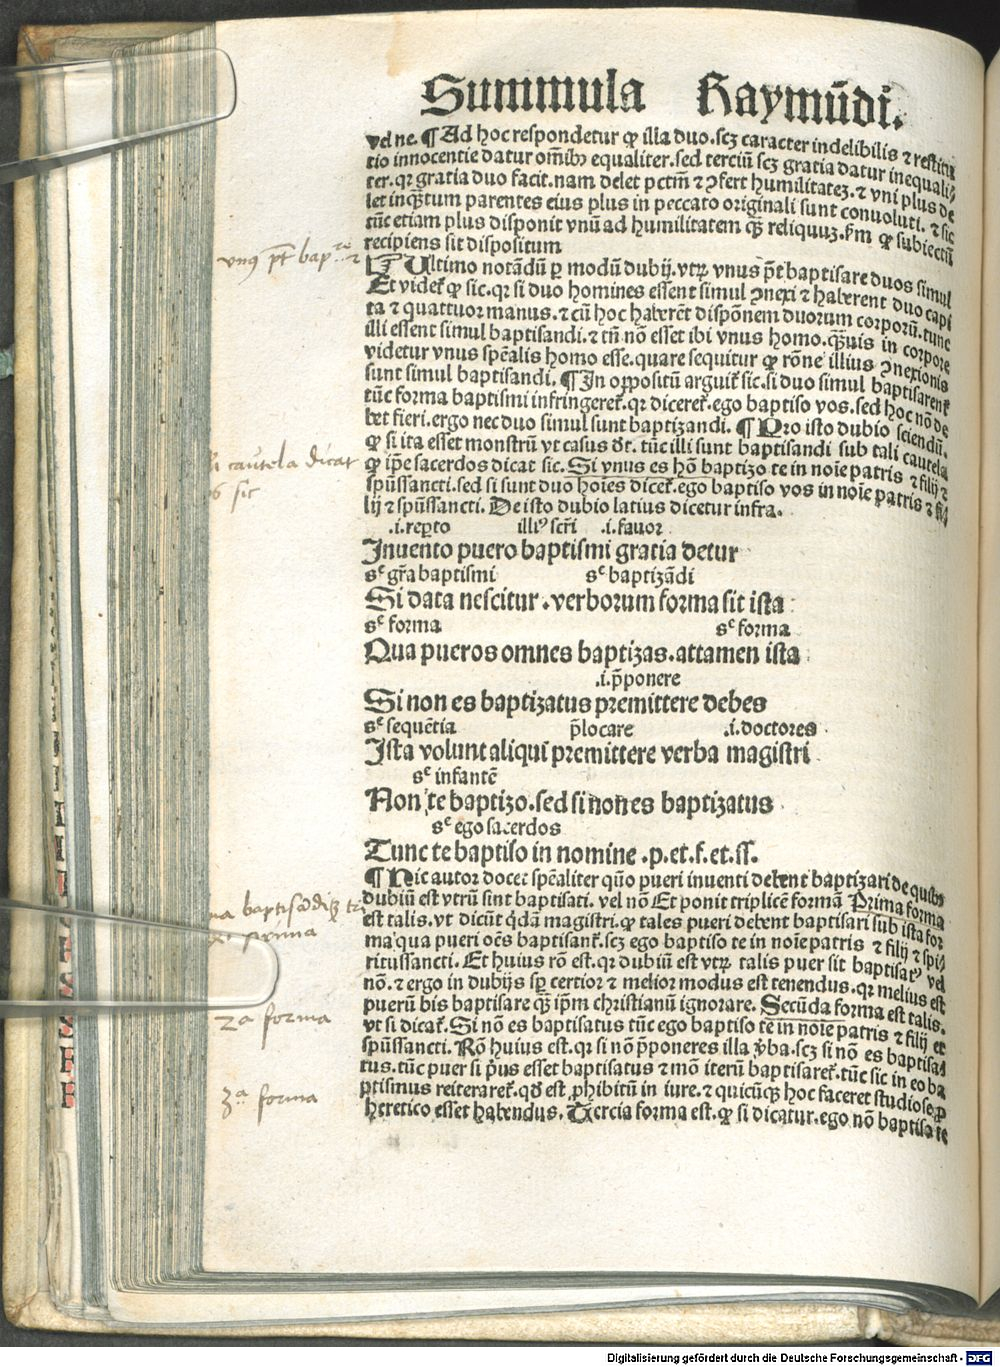 Summula Raymūdi.
vel ne. ¶ Ad hoc respondetur ꝙ illa duo. scꝫ caracter indelibilis ⁊ restitu
tio innocentie datur om̄ibꝰ equaliter. sed terciū scꝫ gratia datur inequali
ter. qꝛ gratia duo facit. nam delet pctm̄ ⁊ ꝯfert humilitateꝫ. ⁊ vni plus de
let inqꝫtum parentes eius plus in peccato originali sunt conuoluti. ⁊ sic
tūc etiam plus disponit vnū ad humilitatem qꝫ reliquuꝫ. fm̄ ꝙ subiectū
recipiens sit dispositum
vnꝰ pt bap
Ultimo notādū ꝑ modū dubij. vtꝝ vnus p̄t baptisare duos simul
Et videt̄ ꝙ sic. qꝛ si duo homines essent simul ꝯnexi ⁊ haberent duo capi
ta ⁊ quattuor manus. ⁊ cū hoc haberēt dispōnem duorum corporū. tunc
illi essent simul baptisandi. ⁊ tn̄ nō esset ibi vnus homo. qꝫuis in corpore
videtur vnus spēalis homo esse. quare sequitur ꝙ rōne illius ꝯnexionis
sunt simul baptisandi. ¶ In oppositū arguit̄ sic. si duo simul baptisarent̄
tūc forma baptismi infringeret̄. qꝛ diceret̄. ego baptiso vos. sed hoc nō de
bet fieri. ergo nec duo simul sunt baptizandi. ¶ Pro isto dubio sciendū.
ꝙ si ita esset monstrū vt casus dt̄. tūc illi sunt baptisandi sub tali cautela
cautela dicat
sic
ꝙ ip̄e sacerdos dicat sic. Si vnus es hō baptizo te in noīe patris ⁊ filij ⁊
spūssancti. sed si sunt duo hoīes dicet̄. ego baptiso vos in noīe patris ⁊ fi
lij ⁊ spūssancti. De isto dubio latius dicetur infra.
.i. reꝑto illiꝰ scri .i. fauor
Inuento puero baptismi gratia detur
sᶜ gr̄a baptismi sᶜ baptizādi
Si data nescitur. verborum forma sit ista
sᶜ forma sᶜ forma
Qua pueros omnes baptizas. attamen ista
.i. p̄ponere
Si non es baptizatus premittere debes
sᶜ sequētia p̄locare .i. doctores
Ista volunt aliqui premittere verba magistri
sᶜ infantē
Non te baptizo. sed si non es baptizatus
sᶜ ego sacerdos
Tunc te baptiso in nomine .p. et. f. et. ss.
¶ Hic autor docet spēaliter quō pueri inuenti debent baptizari de quibꝰ
dubiū est vtrū sint baptisati. vel nō Et ponit triplicē formā Prima forma
prima
est talis. vt dicūt qdā magistri. ꝙ tales pueri debent baptisari sub ista for
ma qua pueri oēs baptisant̄. scꝫ ego baptiso te in noīe patris ⁊ filij ⁊ spi
ritussancti. Et huius rō est. qꝛ dubiū est vtꝝ talis puer sit baptisatꝰ vel
nō. ⁊ ergo in dubijs sp̄ certior ⁊ melior modus est tenendus. qꝛ melius est
puerū bis baptisare qꝫ ip̄m christianū ignorare. Secūda forma est talis.
2a forma
vt si dicat̄. Si nō es baptisatus tūc ego baptiso te in noīe patris ⁊ filij et
spūssancti. Rō huius est. qꝛ si nō p̄poneres illa v̄ba. scꝫ si nō es baptisa
tus. tūc puer si p̄us esset baptisatus ⁊ mō iterū baptisaret̄. tūc sic in eo ba
ptismus reiteraret̄. qd̄ est ꝓhibitū in iure. ⁊ quicūqꝫ hoc faceret studiose ꝓ
3a forma
heretico esset habendus. Tercia forma est. ꝙ si dicatur. ego nō baptiso te
Digitalisierung gefördert durch die Deutsche Forschungsgemeinschaft - DFG